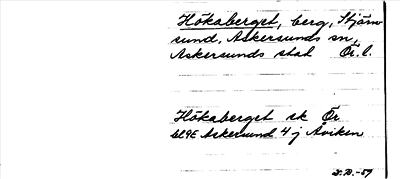 Hökaberget, berg, Stjärn-
sund, Askersunds sn,
Askersunds stad Ör. l.
Hökaberget sk Ör
bl 9E Askersund 4 j Aviken